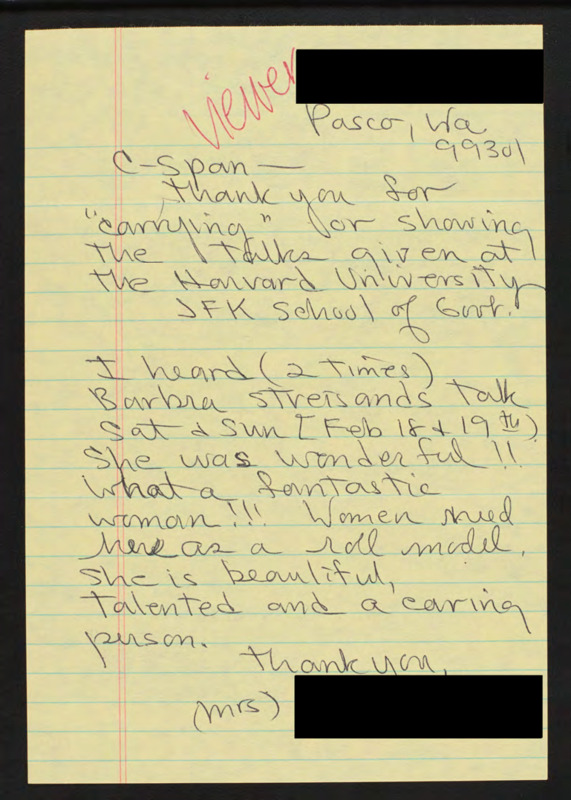 viewer
Pasco, Wa
99301
C-Span —
Thank you for
"carrying" or showing
the talks given at
the Harvard University
JFK School of Govt.
I heard (2 times)
Barbra Streisands talk
Sat & Sun [Feb 18 & 19th)
She was wonderful!!
What a fantastic
woman!!! Women need
her as a roll model.
She is beautiful,
talented and a caring
person.
Thank you,
(Mrs)